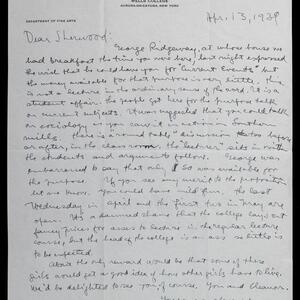 WELLS COLLEGE
AURORA-ON-CAYUGA, NEW YORK
DEPARTMENT OF FINE ARTS
Apr. 13, 1939
Dear Sherwood:
George Ridgeway, at whose house we
had breakfast the time you were here, last night expressed
the wish that he could have you for "Current Events" but
the money available for that purpose is very little, this
is not a lecture in the ordinary sense of the word. It is a
student affair. The people get here for the purpose talk
on current subjects. It was suggested that you could talk
on sociology as you say it in action in Southern
mills. There is a round table discussion before
or after, in the class room. The lecturer sits in with
the students and argument follows. George was
embarrassed to say that only $50 was available for
the purpose. If you see any merit in the proposition
let me know. You could have mild fun. The last
Wednesday in April and the first two in May are
open. It's a damned shame that the college lays out
fancy prices for asses to lecture in the regular lecture
course, but the head of the college is an ass so little is
to be expected.
About the only reward would be that some of these
girls would get a good idea of how other girls have to live.
We'd be delighted to see you, of course, You and Eleanor.